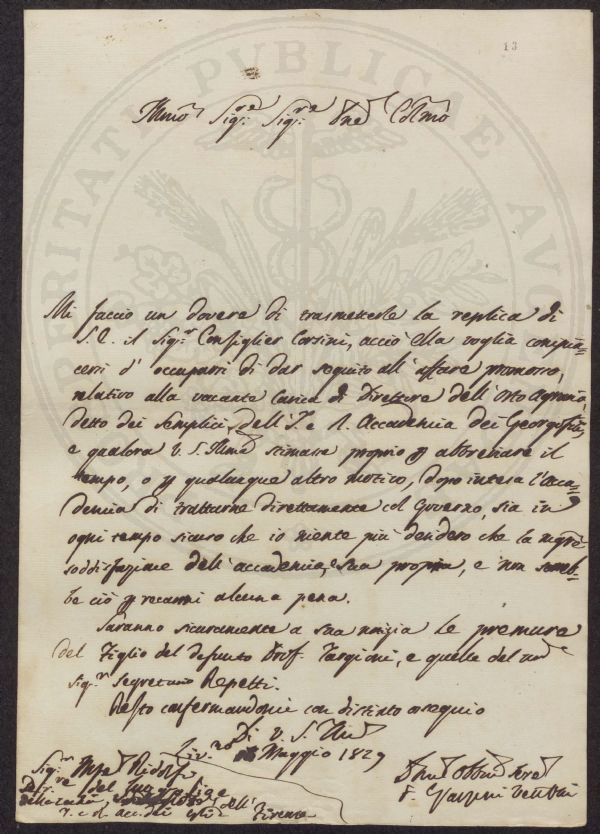 13
PROSPERITATI PUBLICAE AUG
Illmo Sigre Sigre Pne Colmo
Mi faccio un dovere di trasmetterle la replica di
S. E. il Sigr Consiglier Corsini, acciò Ella voglia compia-
cersi d' occuparsi di dar seguito all' affare promosso,
relativo alla vacante Carica di Direttore dell' Orto Agrario,
detto dei Semplici, dell' I. e R. Accademia dei Georgofili,
e qualora V. S. Illma stimasse proprio p abbreviare il
tempo, o p qualunque altro motivo, dopo intesa l' Acca-
demia di trattarne direttamente col Governo, sia in
ogni tempo sicuro che io niente più desidero che la
soddisfazione dell' accademia, e sua propria, e non sareb-
be ciò p recarmi alcuna pena.
Saranno sicuramente a sua notizia le premure
del Figlio del defunto Prof. Targioni, e quelle del
Sigr Segretario Repetti.
Resto confermandomi con distinto ossequio
Di V. S. Illma
Maggio 1829
Sigr Ridolfi
dell'
Firenze